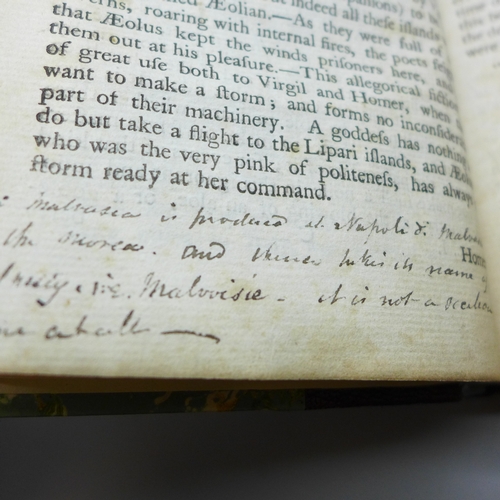 indeed all theſe iſlands
Æolian.—As they were full of
roaring with internal fires, the poets
that Æolus kept the winds priſoners here, and
them out at his pleaſure.—This allegorical fiction
of great uſe both to Virgil and Homer, when
want to make a ſtorm; and forms no inconſider
part of their machinery. A goddeſs has nothing
do but take a flight to the Lipari iſlands, and Æolus
who was the very pink of politeneſs, has always
ſtorm ready at her command.
Home
malvasia is produced at Napoli di Malva
the morea. and thence takes its name of
Malvoisie - it is not a
at all —